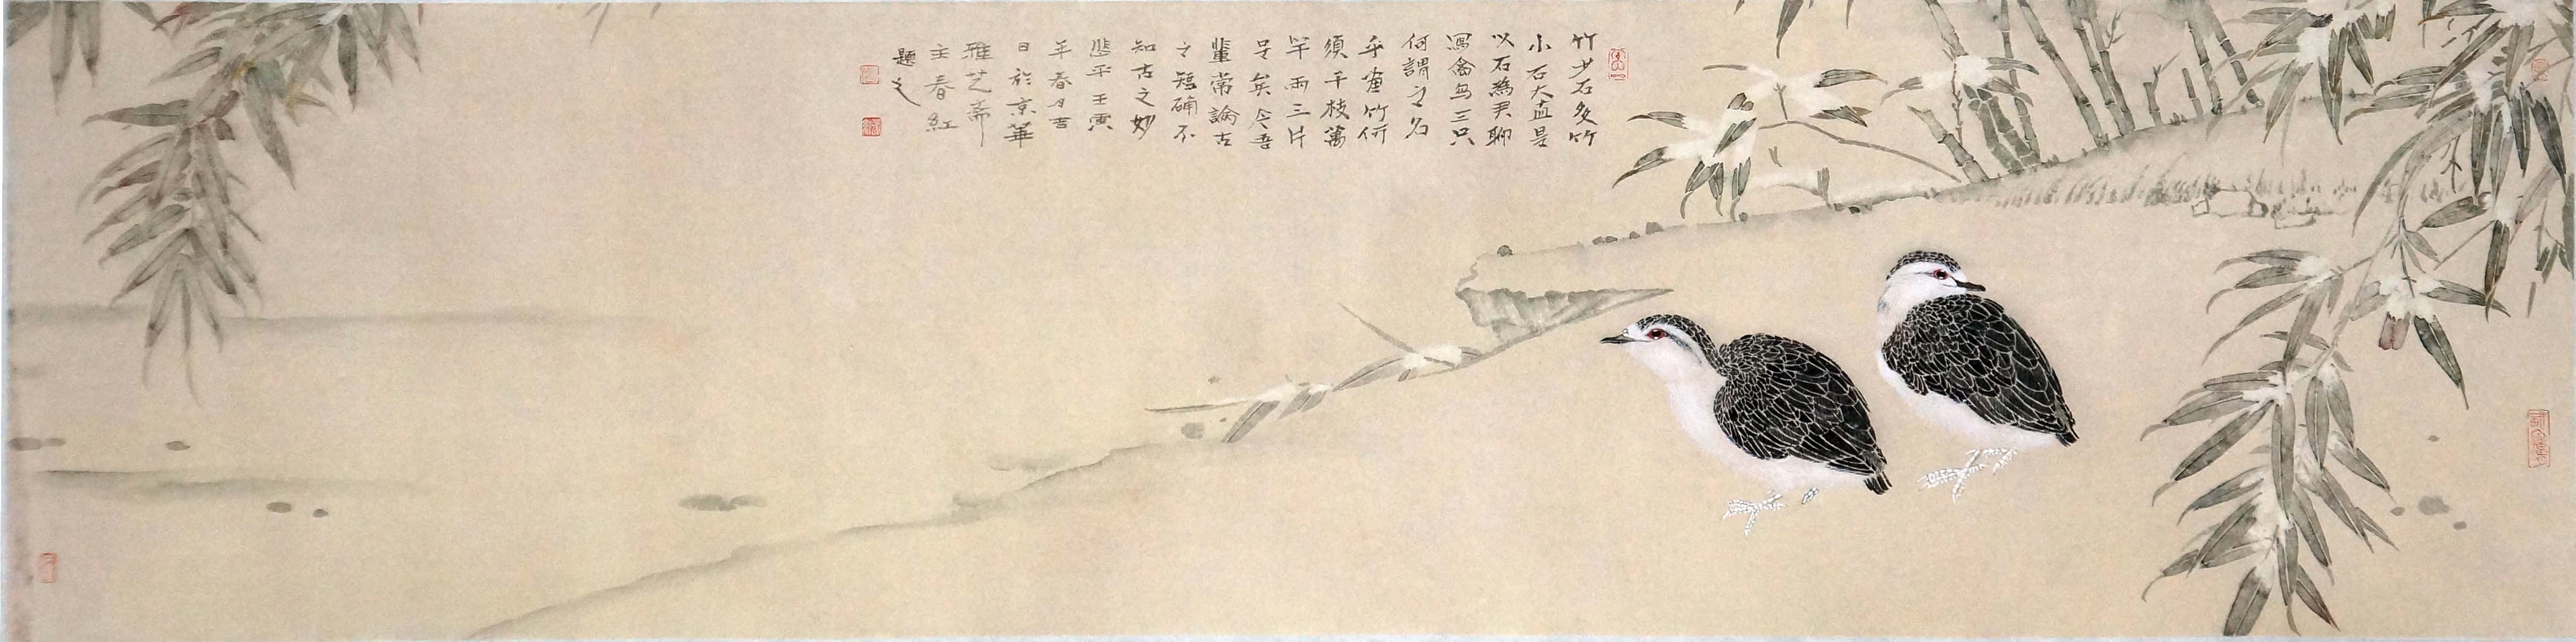 竹少石多竹
小石大直是
以石為君聊
寫禽鳥三只
何謂之名
乎畫竹何
須千枝萬
竿兩三片
足矣今吾
輩常論古
之短確不
知古之妙
悲乎壬寅
年春月吉
日於京華
雅芝斋
主春紅
題之